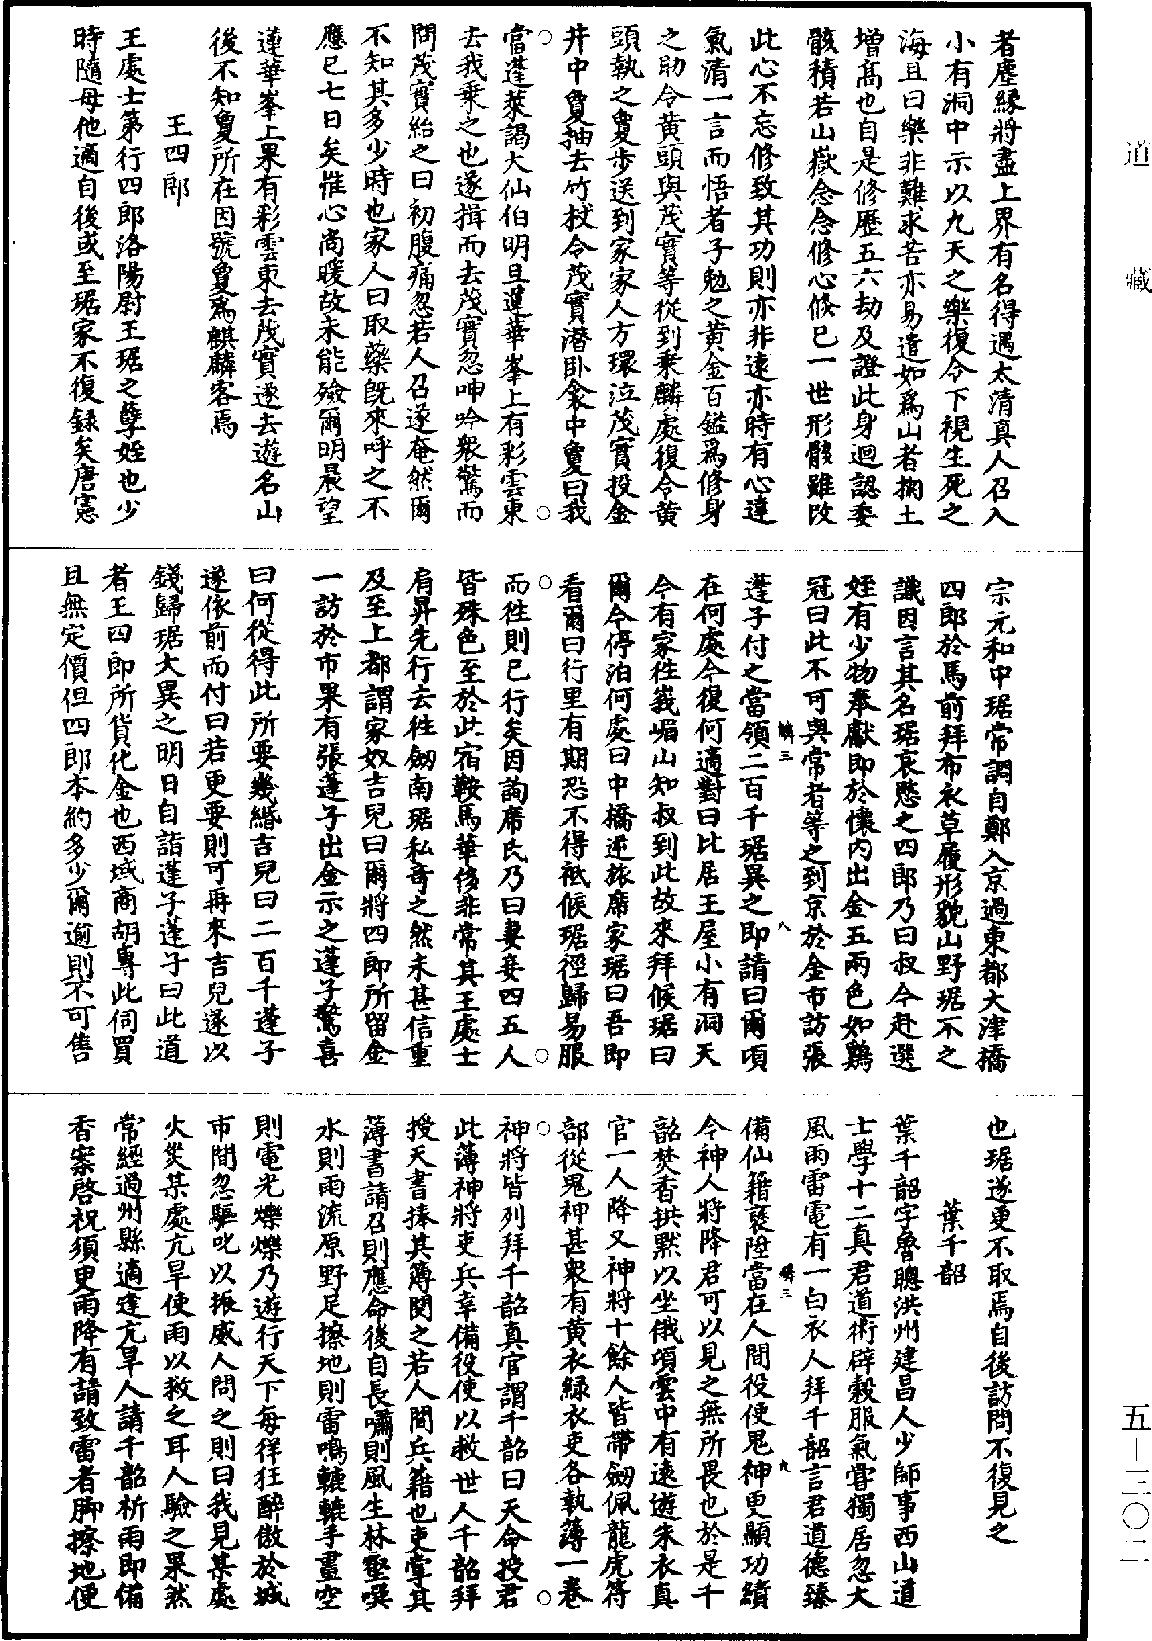 道藏
五—三〇二
者塵緣將盡上界有名得遇太清真人召入
小有洞中示以九天之樂復令下視生死之
海且曰樂非難求苦亦易遣如爲山者掬土
增高也自是修歷五六劫及證此身迴認委
骸積若山嶽念念修心倏已一世形骸雖改
此心不忘修致其功則亦非遠亦時有心達
氣清一言而悟者子勉之黃金百鎰爲修身
之助令黃頭與茂實等從到乘麟處復令黃
頭執之敻步送到家家人方環泣茂實投金
井中敻抽去竹杖令茂實潛卧衾中敻曰我
當蓬萊謁大仙伯明旦蓮華峯上有彩雲東
去我乘之也遂揖而去茂實忽呻吟衆驚而
問茂實紿之曰初腹痛忽若人召遂奄然爾
不知其多少時也家人曰取藥既來呼之不
應已七日矣惟心尚暖故未能殮爾明晨望
蓮華峯上果有彩雲東去茂實遂去遊名山
後不知敻所在因號敻爲麒麟客焉
王四郎
王處士第行四郎洛陽尉王琚之孽姪也少
時隨母他適自後或至琚家不復錄矣唐憲
宗元和中琚常調自鄭入京過東都大津橋
四郎於馬前拜布衣草履形貌山野琚不之
識因言其名琚哀愍之四郎乃曰叔今赴選
姪有少物奉獻即於懷內出金五兩色如鷄
冠曰此不可與常者等之到京於金市訪張
蓬子付之當領二百千琚異之即請曰爾頃
在何處今復何適對曰比居王屋小有洞天
今有家徃峩嵋山知叔到此故來拜候琚曰
爾今停泊何處曰中橋逆旅席家琚曰吾即
看爾曰行里有期恐不得祗候琚徑歸易服
而徃則已行矣因詢席氏乃曰妻妾四五人
皆殊色至於此宿鞍馬華侈非常其王處士
肩舁先行去徃劒南琚私奇之然未甚信重
及至上都謂家奴吉兒曰爾將四郎所留金
一訪於市果有張蓬子出金示之蓬子驚喜
曰何從得此所要幾緡吉兒曰二百千蓬子
遂依前而付曰若更要則可再來吉兒遂以
錢歸琚大異之明日自詣蓬子蓬子曰此道
者王四郎所貨化金也西域商胡專此伺買
且無定價但四郎本約多少爾逾則不可售
也琚遂更不取焉自後訪問不復見之
葉千韶
葉千韶字魯聰洪州建昌人少師事西山道
士學十二真君道術辟穀服氣甞獨居忽大
風雨雷電有一白衣人拜千韶言君道德臻
備仙籍褎陞當在人間役使鬼神更顯功績
今神人將降君可以見之無所畏也於是千
韶焚香拱默以坐俄頃雲中有遠遊朱衣真
官一人降又神將十餘人皆帶劒佩龍虎符
部從鬼神甚衆有黃衣綠衣吏各執簿一卷
神將皆列拜千韶真官謂千韶曰天命授君
此簿神將吏兵幸備役使以救世人千韶拜
授天書捧其簿閱之若人間兵籍也吏掌其
簿書請召則應命後自長嘯則風生林壑噀
水則雨流原野足擦地則雷鳴轆轆手畫空
則電光爍爍乃遊行天下每徉狂醉傲於城
市間忽驅叱以振威人問之則曰我見某處
火災某處亢旱使雨以救之耳人驗之果然
常經過州縣適逢亢旱人請千韶祈雨即備
香案啓祝須臾雨降有請致雷者脚擦地便
麟三
八
麟三
九